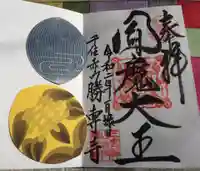 奉拝
閻魔大王
令和二年一月
千住赤門勝専寺